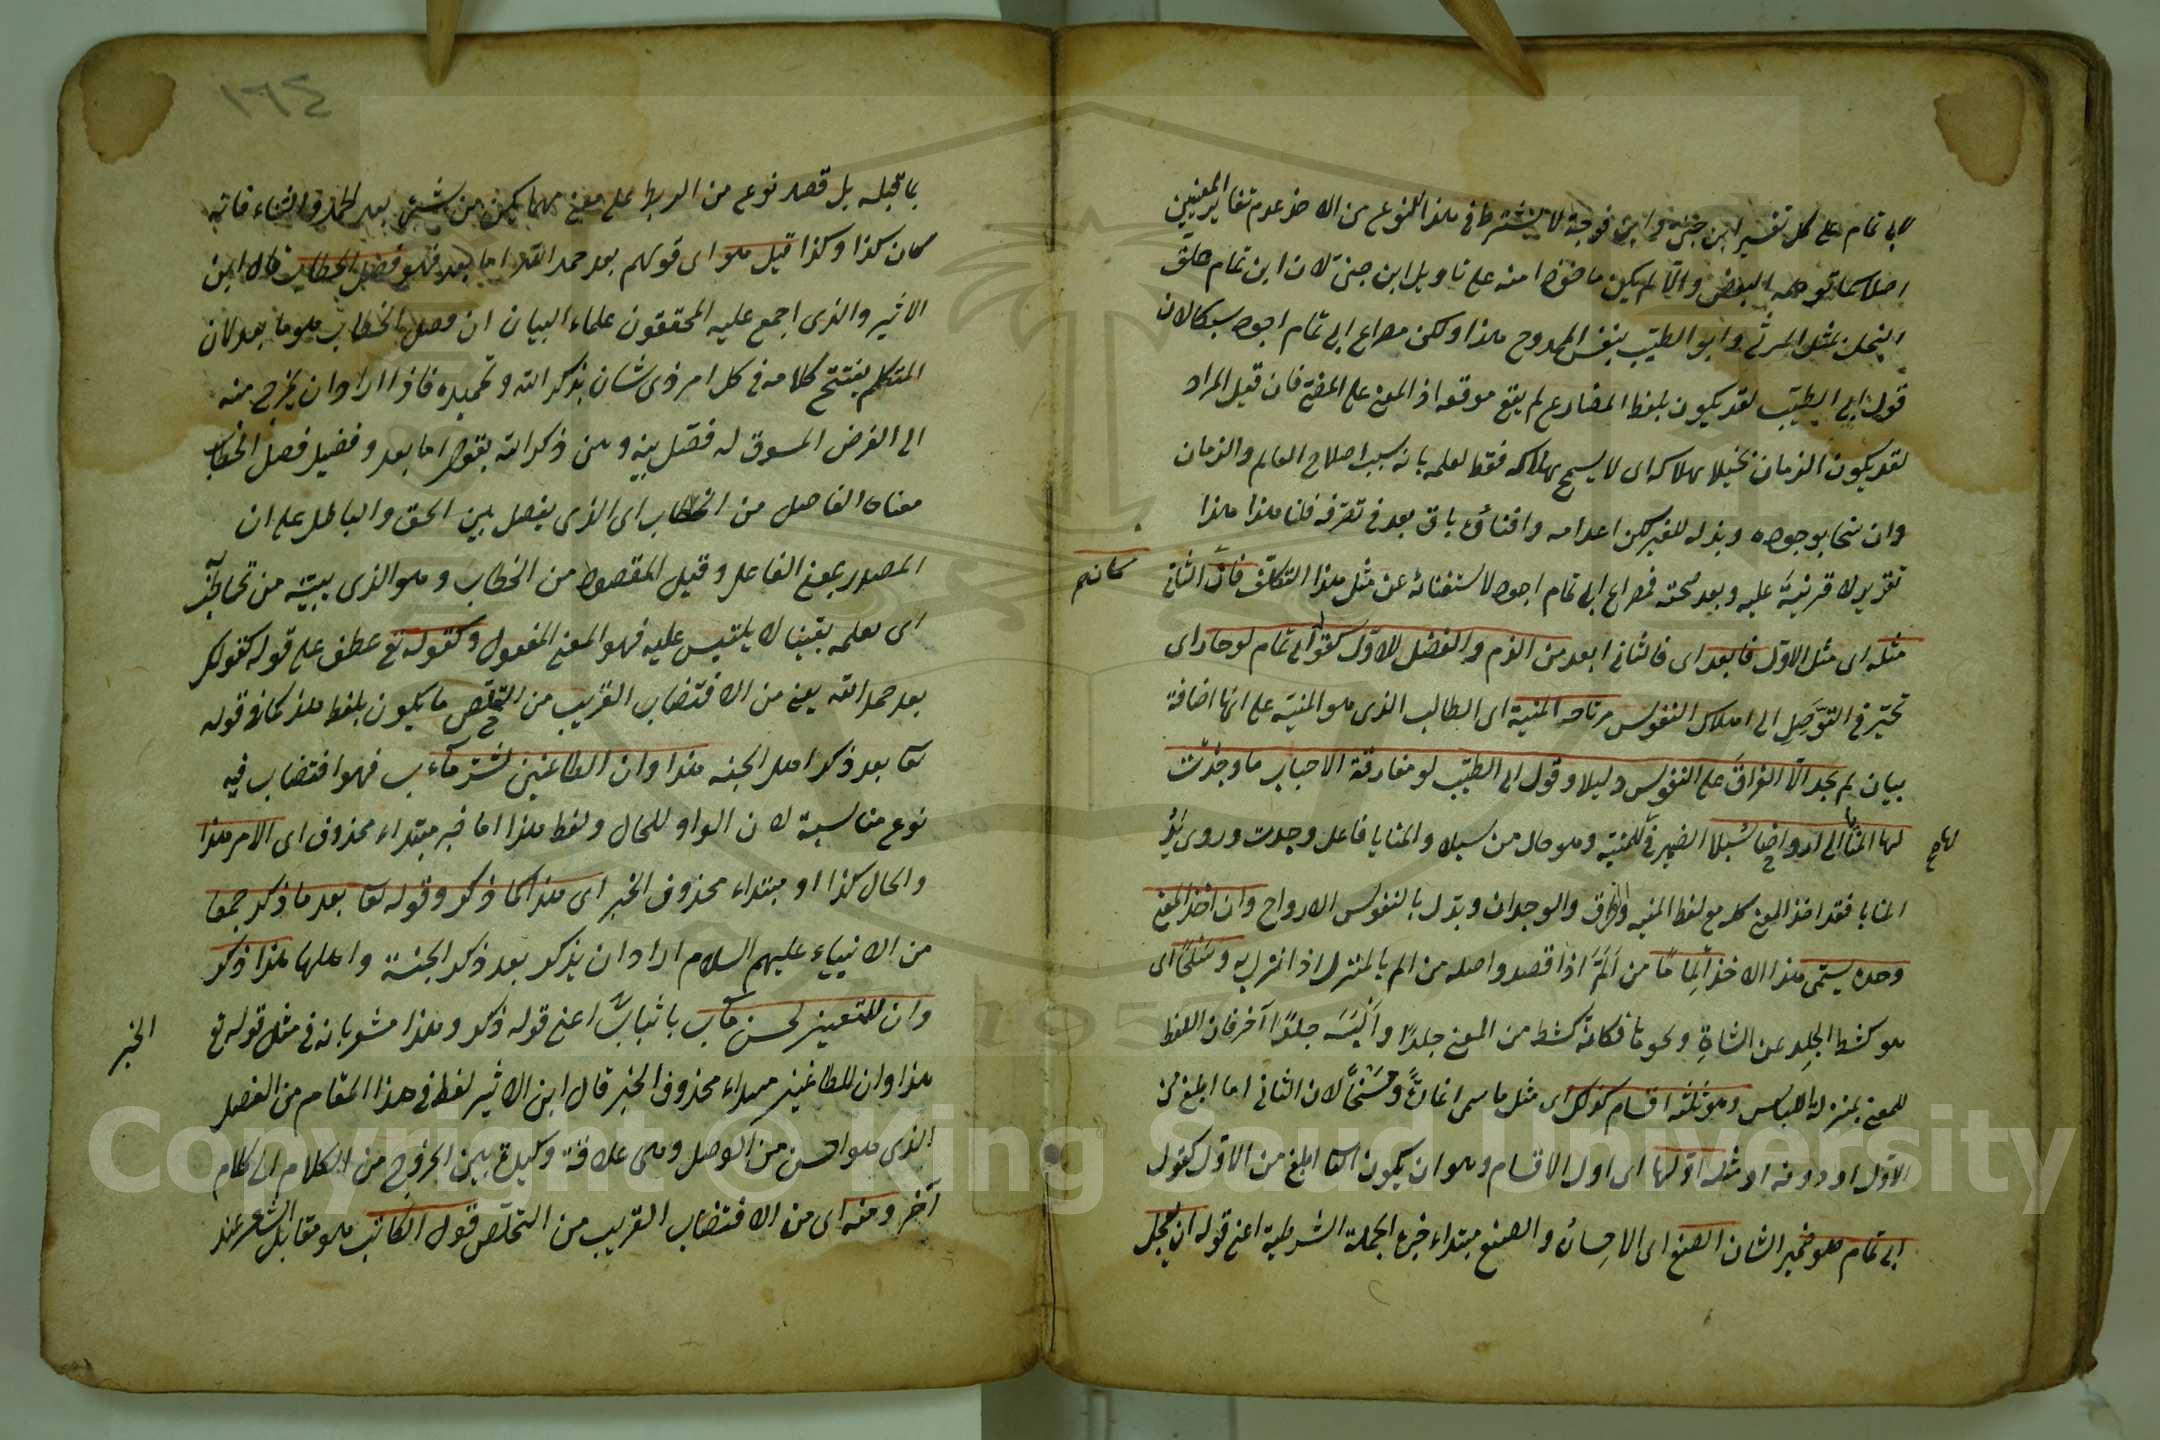 لابي تمام على كل تفسير ابن جنى وابن فوجة لا يشترط في هذا النوع من الاخذ عدم تغاير المعنيين
اصلا كما توهمه البعض والا لم يكن ماخوذا منه على تاويل ابن جنى لان ابن تمام علق
البخل بمثل المرثى وابو الطيب بنفس الممدوح هذا ولكن مصراع ابي تمام اجود سبكا لان
قول ابي الطيب لقد يكون بلفظ المضارع لم يقع موقعه اذ المعنى على المضى فان قيل المراد
لقد يكون الزمان بخيلا بهلاكه اى لا يسمح بهلاكه فقط لعلمه بانه سبب اصلاح العالم والزمان
وان سخا بوجوده وبذله للغير لكن اعدامه وافناؤه باق بعد في تصرفه قلنا هذا
تقدير لا قرينة عليه وبعد صحته فمصراع ابي تمام اجود لاستغنائه عن مثل هذا التكلف فان الثاني
كانم
مثله اى مثل الاول فابعد اى فالثانى ابعد من الذم والفضل للاول كقول ابي تمام لو حار اى
تحير في التوصل الى اهلاك النفوس مرتاد المنية اى الطالب الذى هو المنية على انها اضافة
بيان لم يجد الا الفراق على النفوس دليلا وقول ابي الطيب لولا مفارقة الاحباب ما وجدت
لها المنايا الى ارواحنا سبلا الضمير في للمنية وهو حال من سبلا والمنايا فاعل وجدت وروى يد
لها
المنايا فقد اخذ المعنى كله مع لفظ المنية والفراق والوجدان وبدل بالنفوس الارواح وان اخذ المعنى
وحده يسمى هذا الاخذ الماما من الم اذا قصد واصله من الم بالمنزل اذا نزل به وسلخا اى
هو كشط الجلد عن الشاة ونحوها فكانه كشط من المعنى جلدا والبسه جلدا آخر فان اللفظ
للمعنى بمنزلة اللباس وهو ثلثة اقسام كذلك اى مثل ما سمى اغارة ومسخا لان الثاني اما ابلغ من
الاول او دونه او مثله اولها اى اول الاقسام وهو ان يكون الثانى ابلغ من الاول كقول
ابي تمام هو ضمير الشان الصنع اى الاحسان والصنع مبتداء خبره الجملة الشرطية اعنى قوله ان يعجل
١٦٤
بما قبله بل قصد نوع من الربط على معنى مهما يكن من شئ بعد الحمد والثناء فانه
كان كذا وكذا قيل هو اى قولهم بعد حمد الله اما بعد فهو فصل الخطاب قال ابن
الاثير والذى اجمع عليه المحققون علماء البيان ان فصل الخطاب هو اما بعد لان
المتكلم يفتتح كلامه في كل امر ذى شان بذكر الله وتحميده فاذا اراد ان يخرج منه
الى الغرض المسوق له فصل بينه وبين ذكر الله بقوله اما بعد وقيل فصل الخطاب
معناه الفاصل من الخطاب اى الذى يفصل بين الحق والباطل على ان
المصدر بمعنى الفاعل وقيل المفصول من الخطاب وهو الذى يبينه من تخاطبه
اى يعلمه بينا لا يلتبس عليه فهو المعنى المفعول وكقوله تع عطف على قوله كقولك
بعد حمد الله يعنى من الاقتضاب القريب من التخلص ما يكون بلفظ هذا كما في قوله
تعا بعد ذكر اهل الجنة هذا وان للطاغين لشر مآب فهو اقتضاب فيه
نوع مناسبة لان الواو للحال ولفظ هذا اما خبر مبتداء محذوف اى الامر هذا
والحال كذا او مبتداء محذوف الخبر اى هذا كما ذكر وقوله تعا بعد ما ذكر جمعا
من الانبياء عليهم السلام اراد ان يذكر بعد ذكر الجنة واهلها هذا ذكر
وان للمتقين لحسن مآب باثبات اعنى قوله ذكر وهذا مشعر بانه في مثل قوله تع
الخبر
هذا وان للطاغين مبتداء محذوف الخبر قال ابن الاثير لفظ في هذا المقام من الفصل
الذى هو احسن من الوصل وهى علاقة وكيدة بين الخروج من الكلام الى كلام
آخر ومنه اى من الاقتضاب القريب من التخلص قول الكاتب هو مقابل الشاعر عند
Copyright © King Saud University
1957